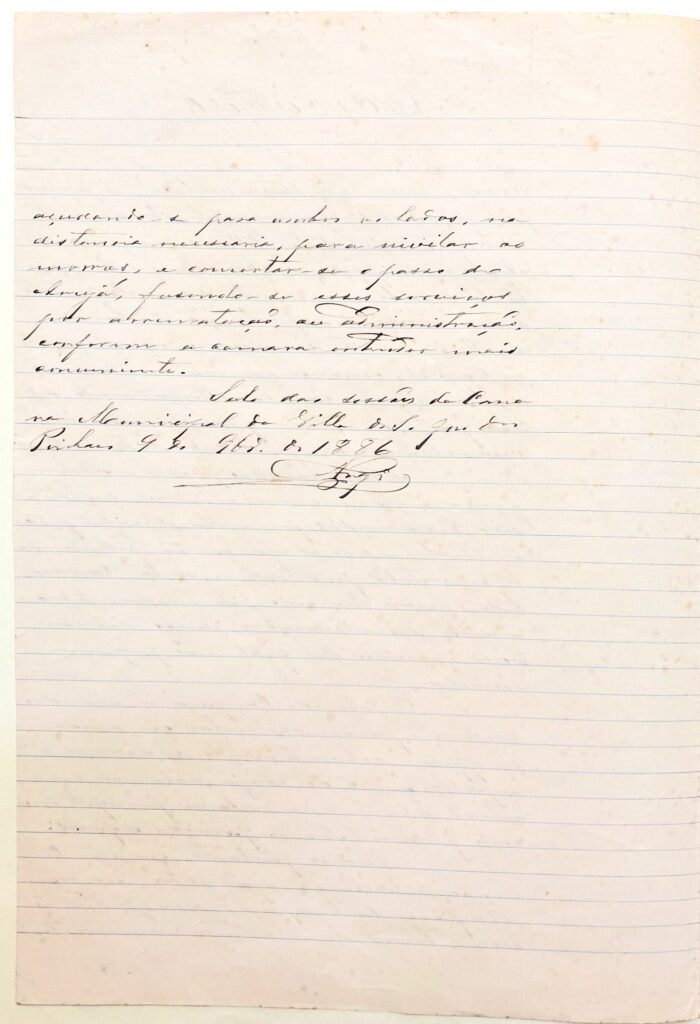 açudando-se para ambos os lados, na
distancia necessaria, para nivilar os
morros, e concertar-se o passo do
Arujá, fasendo-se esses serviços
por arrematação, ou administração,
conforme a camara entender mais
conveniente.
Sala das sessões da Cama
ra Municipal da Villa de S. José dos
Pinhaes 9 de 9bro. de 1886